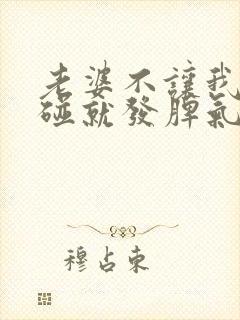 老婆不讓我
碰就發脾氣
穆占東